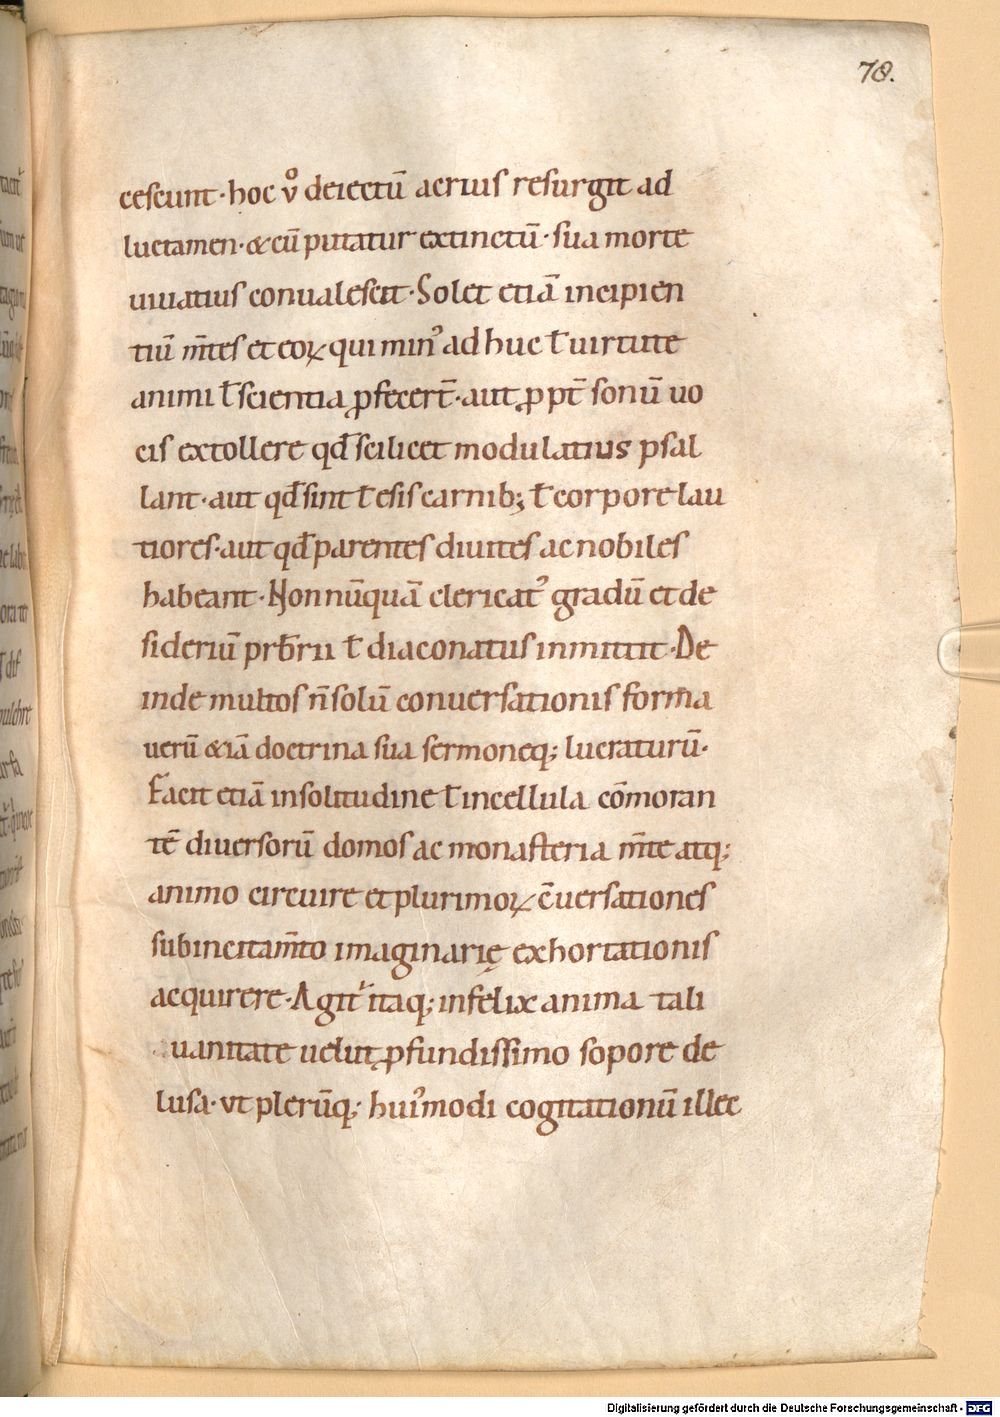 78.
cescunt · hoc v̊ deiectū acrius resurgit ad
luctamen · & cū putatur extinctū · sua morte
uiuatius conualescit · Solet etiā incipien
tiū m̄tes et eoꝝ qui minꝰ ad huc ł uirtute
animi ł scientia ꝓfecert̄ · aut ꝓpt̄ sonū uo
cis extollere qd̄ scilicet modulatius psal
lant · aut qd̄ sint ł esis carnib; ł corpore lau
tiores · aut qd̄ parentes diuites ac nobiles
habeant · Nonnūquā clericatꝰ gradū et de
sideriū prb̄rii ł diaconatus inmittit · De
inde multos n̄ solū conuersationis forma
uerū &iā doctrina sua sermoneq; lucraturū ·
Facit etiā in solitudine ł in cellula cōmoran
tē diuersorū domos ac monasteria m̄te atq;
animo circuire et plurimoꝝ c̄uersationes
sub incitam̄to imaginarię exhortationis
acquirere · Agit᷑ itaq; infelix anima tali
uanitate uelut ꝓfundissimo sopore de
lusa · ut plerūq; huiꝰmodi cogitationū illec